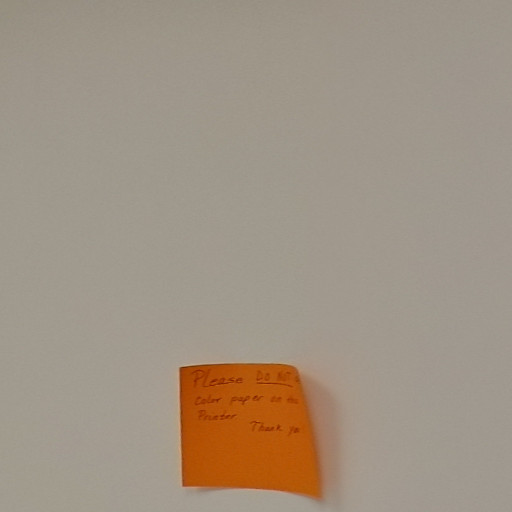 Please DO NOT
Color paper on this
Printer
Thank you